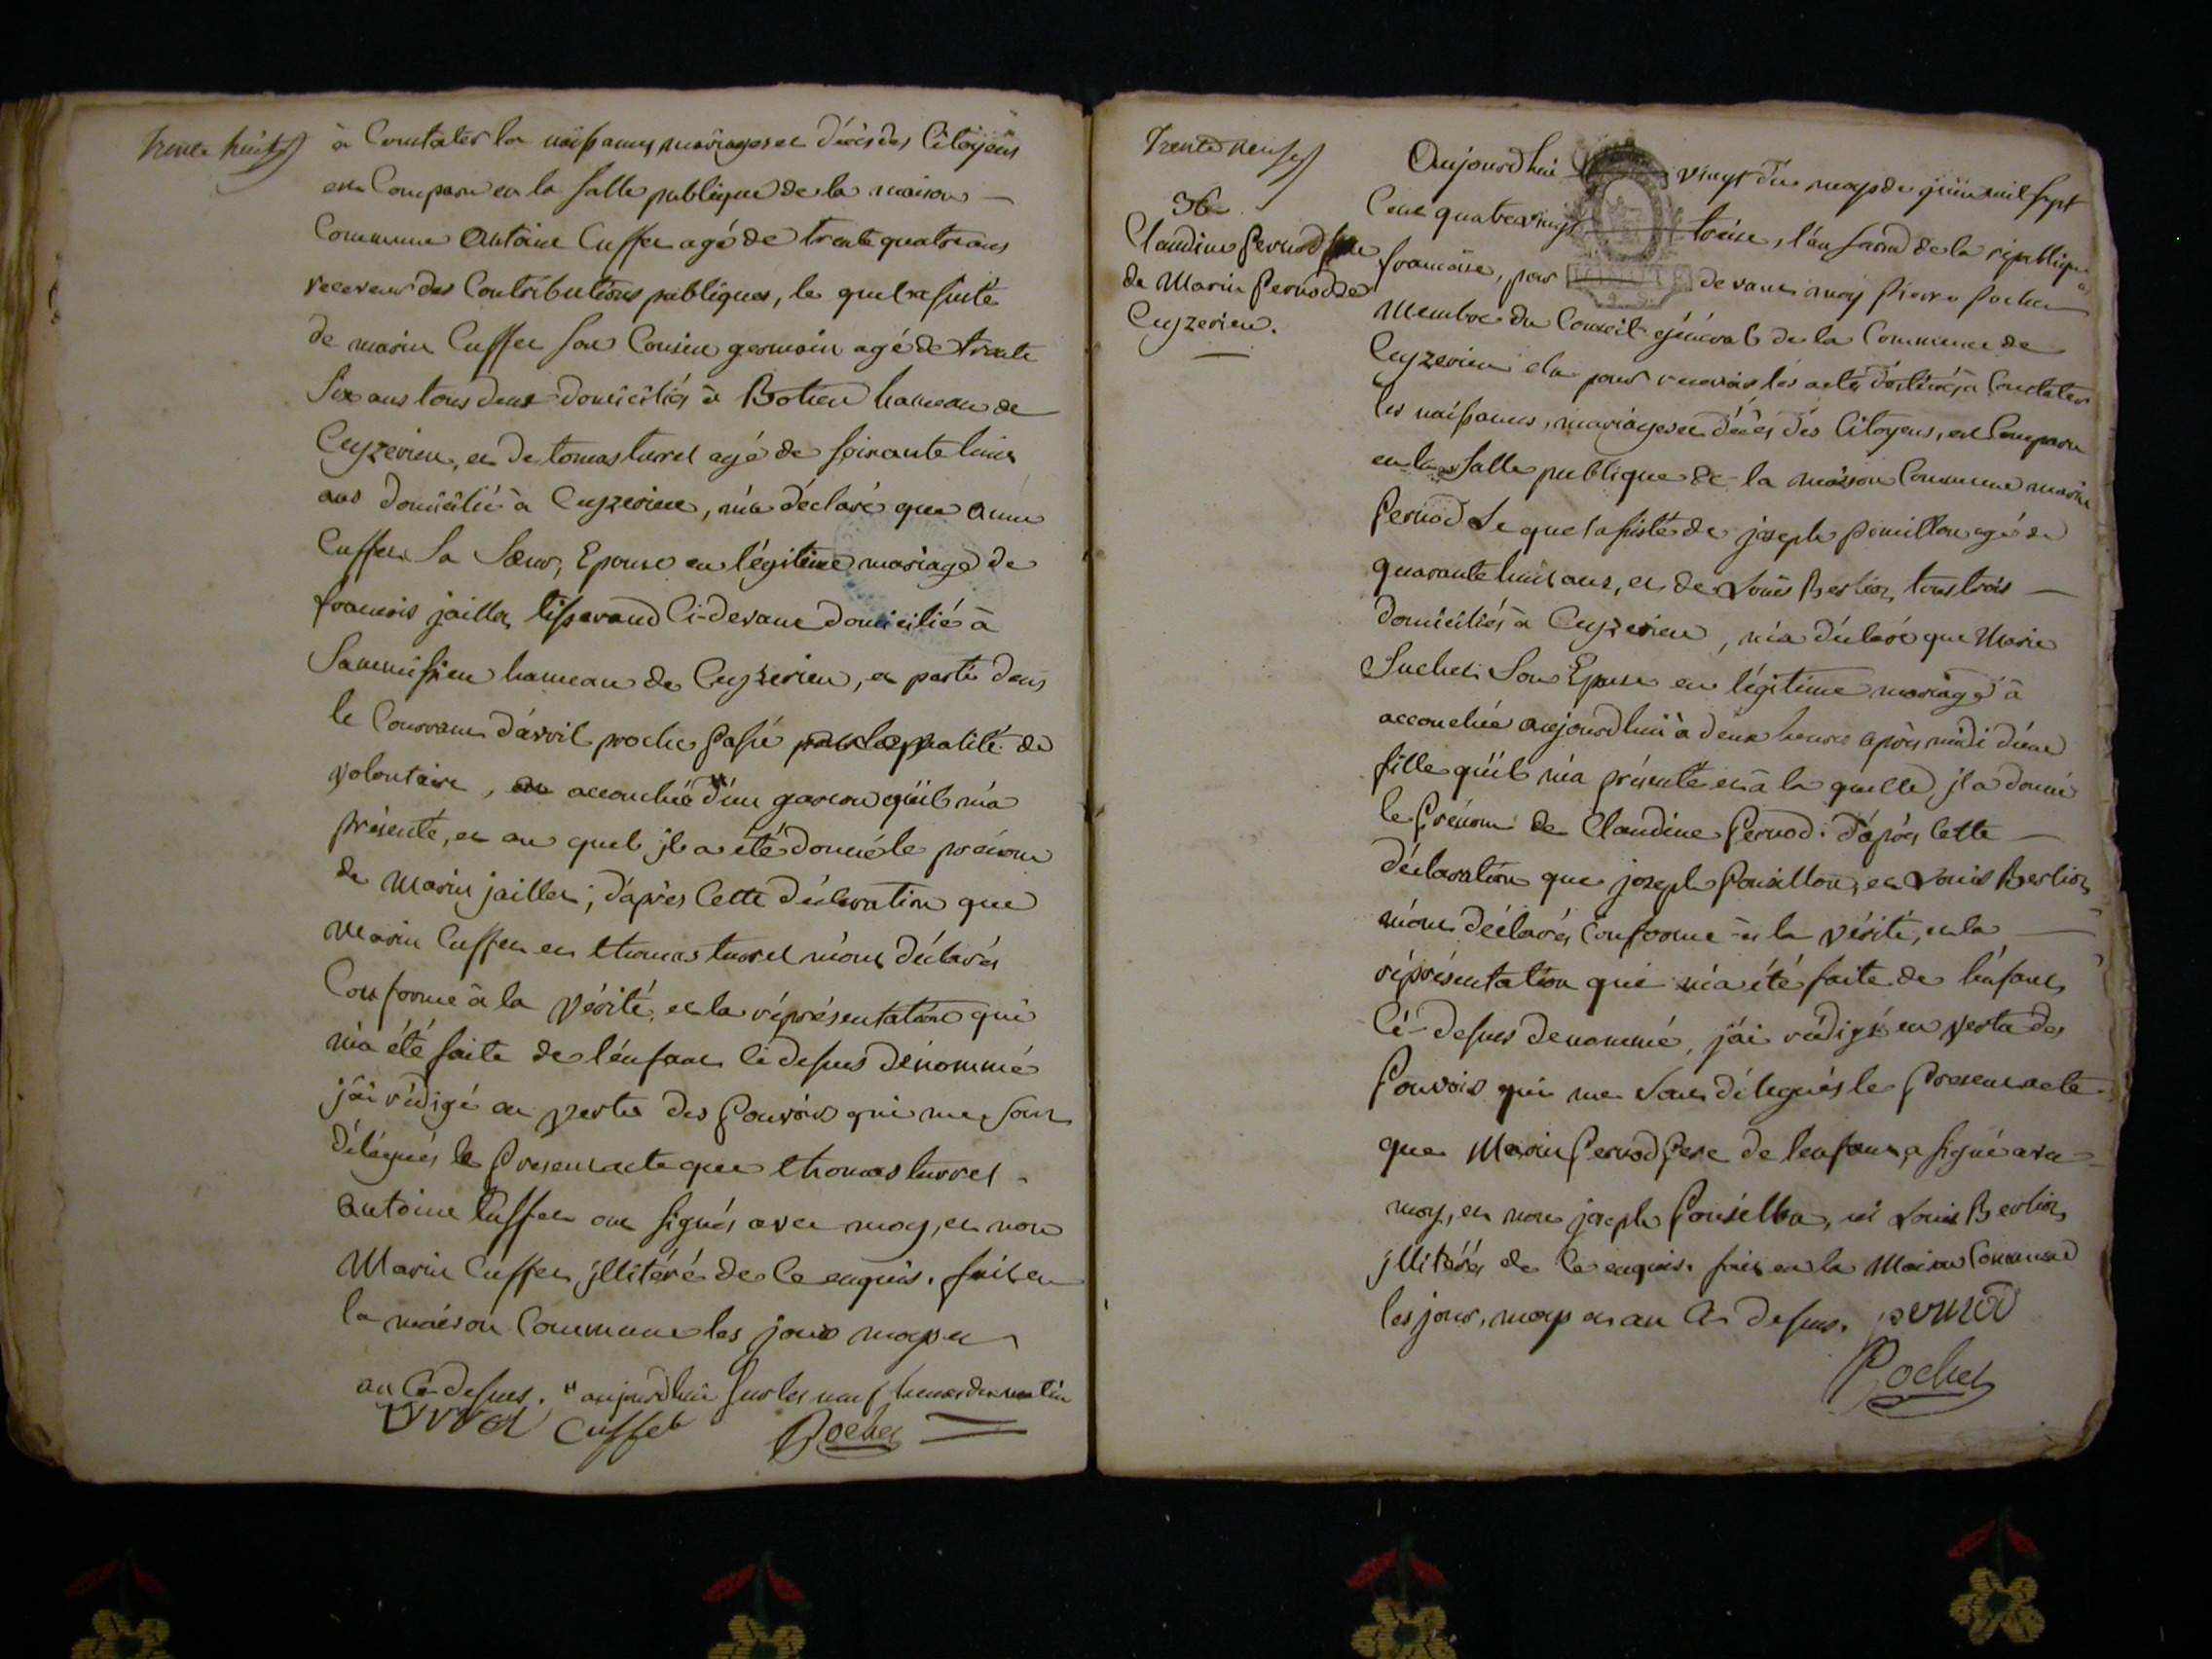 trente huit
à Constater les naissances, mariages et décès des Citoyens
est Comparu en la salle publique de la maison
Commune Antoine Cuffet agé de trente quatre ans
receveur des Contributions publiques, le quel assisté
de marin Cuffet son Cousin germain agé de trente
six ans tous deux domiciliés à Botieu hameau de
Ceyzerieu, et de tomas turrel agé de soixante huit
ans domicilié à Ceyzerieu, m'a déclaré que anne
Cuffet sa sœur, Epouse en légitime mariage de
francois jaillet, tisserand Ci-devant domicilié à
hameau de Ceyzerieu, et parti dans
le Courrant d'avril proche passé qualité de
volontaire, est accouchée " d'un garcon qu'il m'a
présenté, et au quel il a été donné le prénom
de Marin jaillet; d'après Cette déclaration que
Marin Cuffet et thomas turrel m'ont déclarés
Conforme à la vérité, et la réprésentation qui
m'a été faite de l'enfant Ci dessus dénommé
j'ai rédigé en vertu des Pouvoirs qui me sont
délégués le Présent acte que thomas turrel
antoine Cuffet ont signés avec moy, et non
Marin Cuffet jllitéré de Ce enquis. fait en
la maison Commune les jour moys et
an Ci-dessus. " aujourd'hui sur les neuf heures du matin
turrel Cuffet Pochet
trente neuf
36
Claudine Pernod fille
de Marin Pernod de
Ceyzerieu.
Aujourd'hui vingt du moys de juin mil sept
Cent quatre vingt treise, l'an second de la république
francoise, par devant moy Pierre Pochet
Membre du Conseil général de la Commune de
Ceyzerieu élu pour recevoir les actes destinés à Constater
les naissances, mariages et décès des Citoyens, est Comparu
en la salle publique de la maison Commune marin
Pernod le quel assisté de joseph agé de
quarante huit ans, et de Louis Berlioz, tous trois
domiciliés à Ceyzerieu, m'a déclaré que Marie
Suchet son Epouse en légitime mariage à
accouchée aujourd'hui à deux heures après midi d'une
fille qu'il m'a présenté et à la quelle jl a donné
le Prénom de Claudine Pernod. d'après Cette
déclaration que joseph et Louis Berlioz
m'ont déclarés Conforme à la vérité, et la
réprésentation qui m'a été faite de l'enfant
Ci-dessus denommé, j'ai rédigé en vertu des
Pouvoirs qui me sont délégués le Present acte
que Marin Pernod Pere de l'enfant a signé avec
moy, et non joseph ni Louis Berlioz
jllitérés de Ce enquis. fait en la Maison Commune
les jour, moys et an Ci dessus. pernod
Pochet